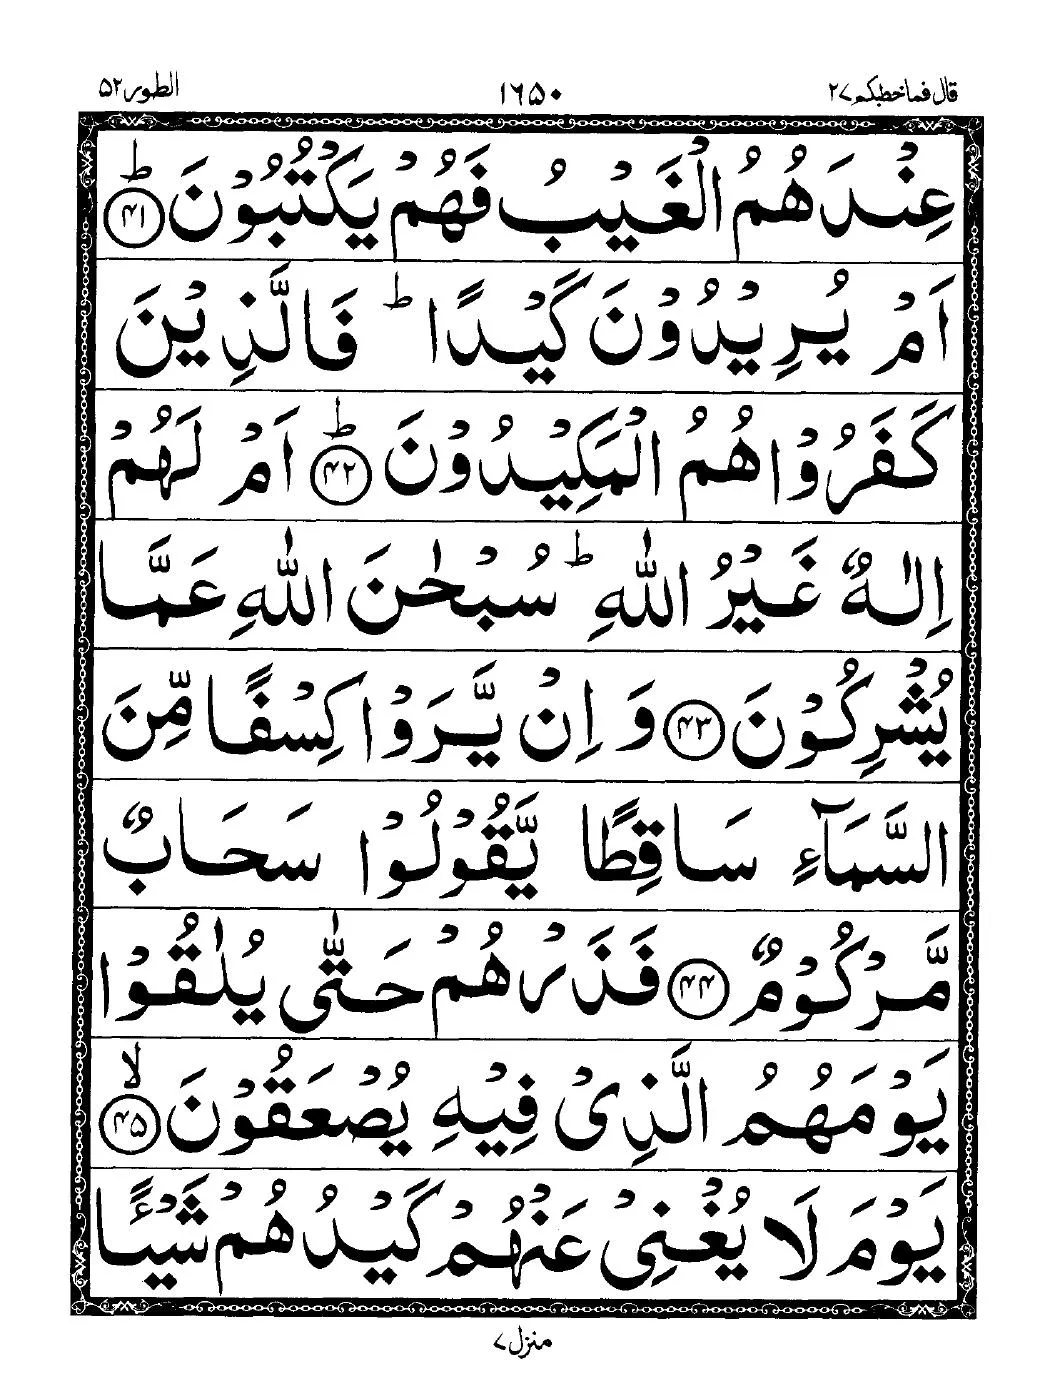 قال فماخطبکم ۲۷
۱۶۵۰
الطور ۵۲
عِنْدَهُمُ الْغَيْبُ فَهُمْ يَكْتُبُوْنَ ؕ﴿۴۱﴾
اَمْ يُرِيْدُوْنَ كَيْدًا ؕ فَالَّذِيْنَ
كَفَرُوْا هُمُ الْمَكِيْدُوْنَ ؕ﴿۴۲﴾ اَمْ لَهُمْ
اِلٰهٌ غَيْرُ اللّٰهِ ؕ سُبْحٰنَ اللّٰهِ عَمَّا
يُشْرِكُوْنَ ﴿۴۳﴾ وَ اِنْ يَّرَوْا كِسْفًا مِّنَ
السَّمَآءِ سَاقِطًا يَّقُوْلُوْا سَحَابٌ
مَّرْكُوْمٌ ﴿۴۴﴾ فَذَرْهُمْ حَتّٰى يُلٰقُوْا
يَوْمَهُمُ الَّذِىْ فِيْهِ يُصْعَقُوْنَ ۙ﴿۴۵﴾
يَوْمَ لَا يُغْنِىْ عَنْهُمْ كَيْدُهُمْ شَيْـًٔا
منزل ۷